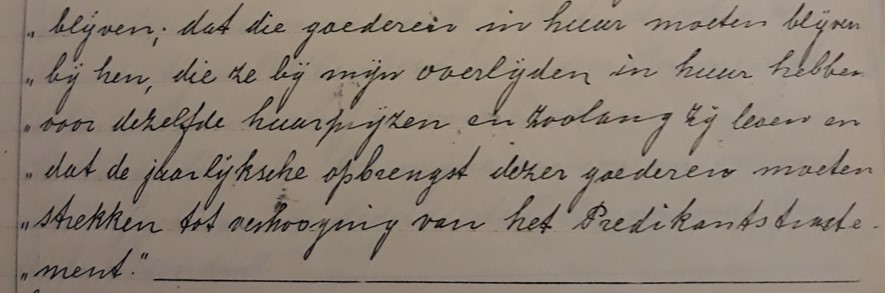 „ blijven; dat die goederen in huur moeten blijven
„ bij hen, die ze bij mijn overlijden in huur hebben
„ voor dezelfde huurprijzen en zoolang zij leven en
„ dat de jaarlijksche opbrengst dezer goederen moeten
„ strekken tot verhooging van het Predikantstracte-
„ ment."